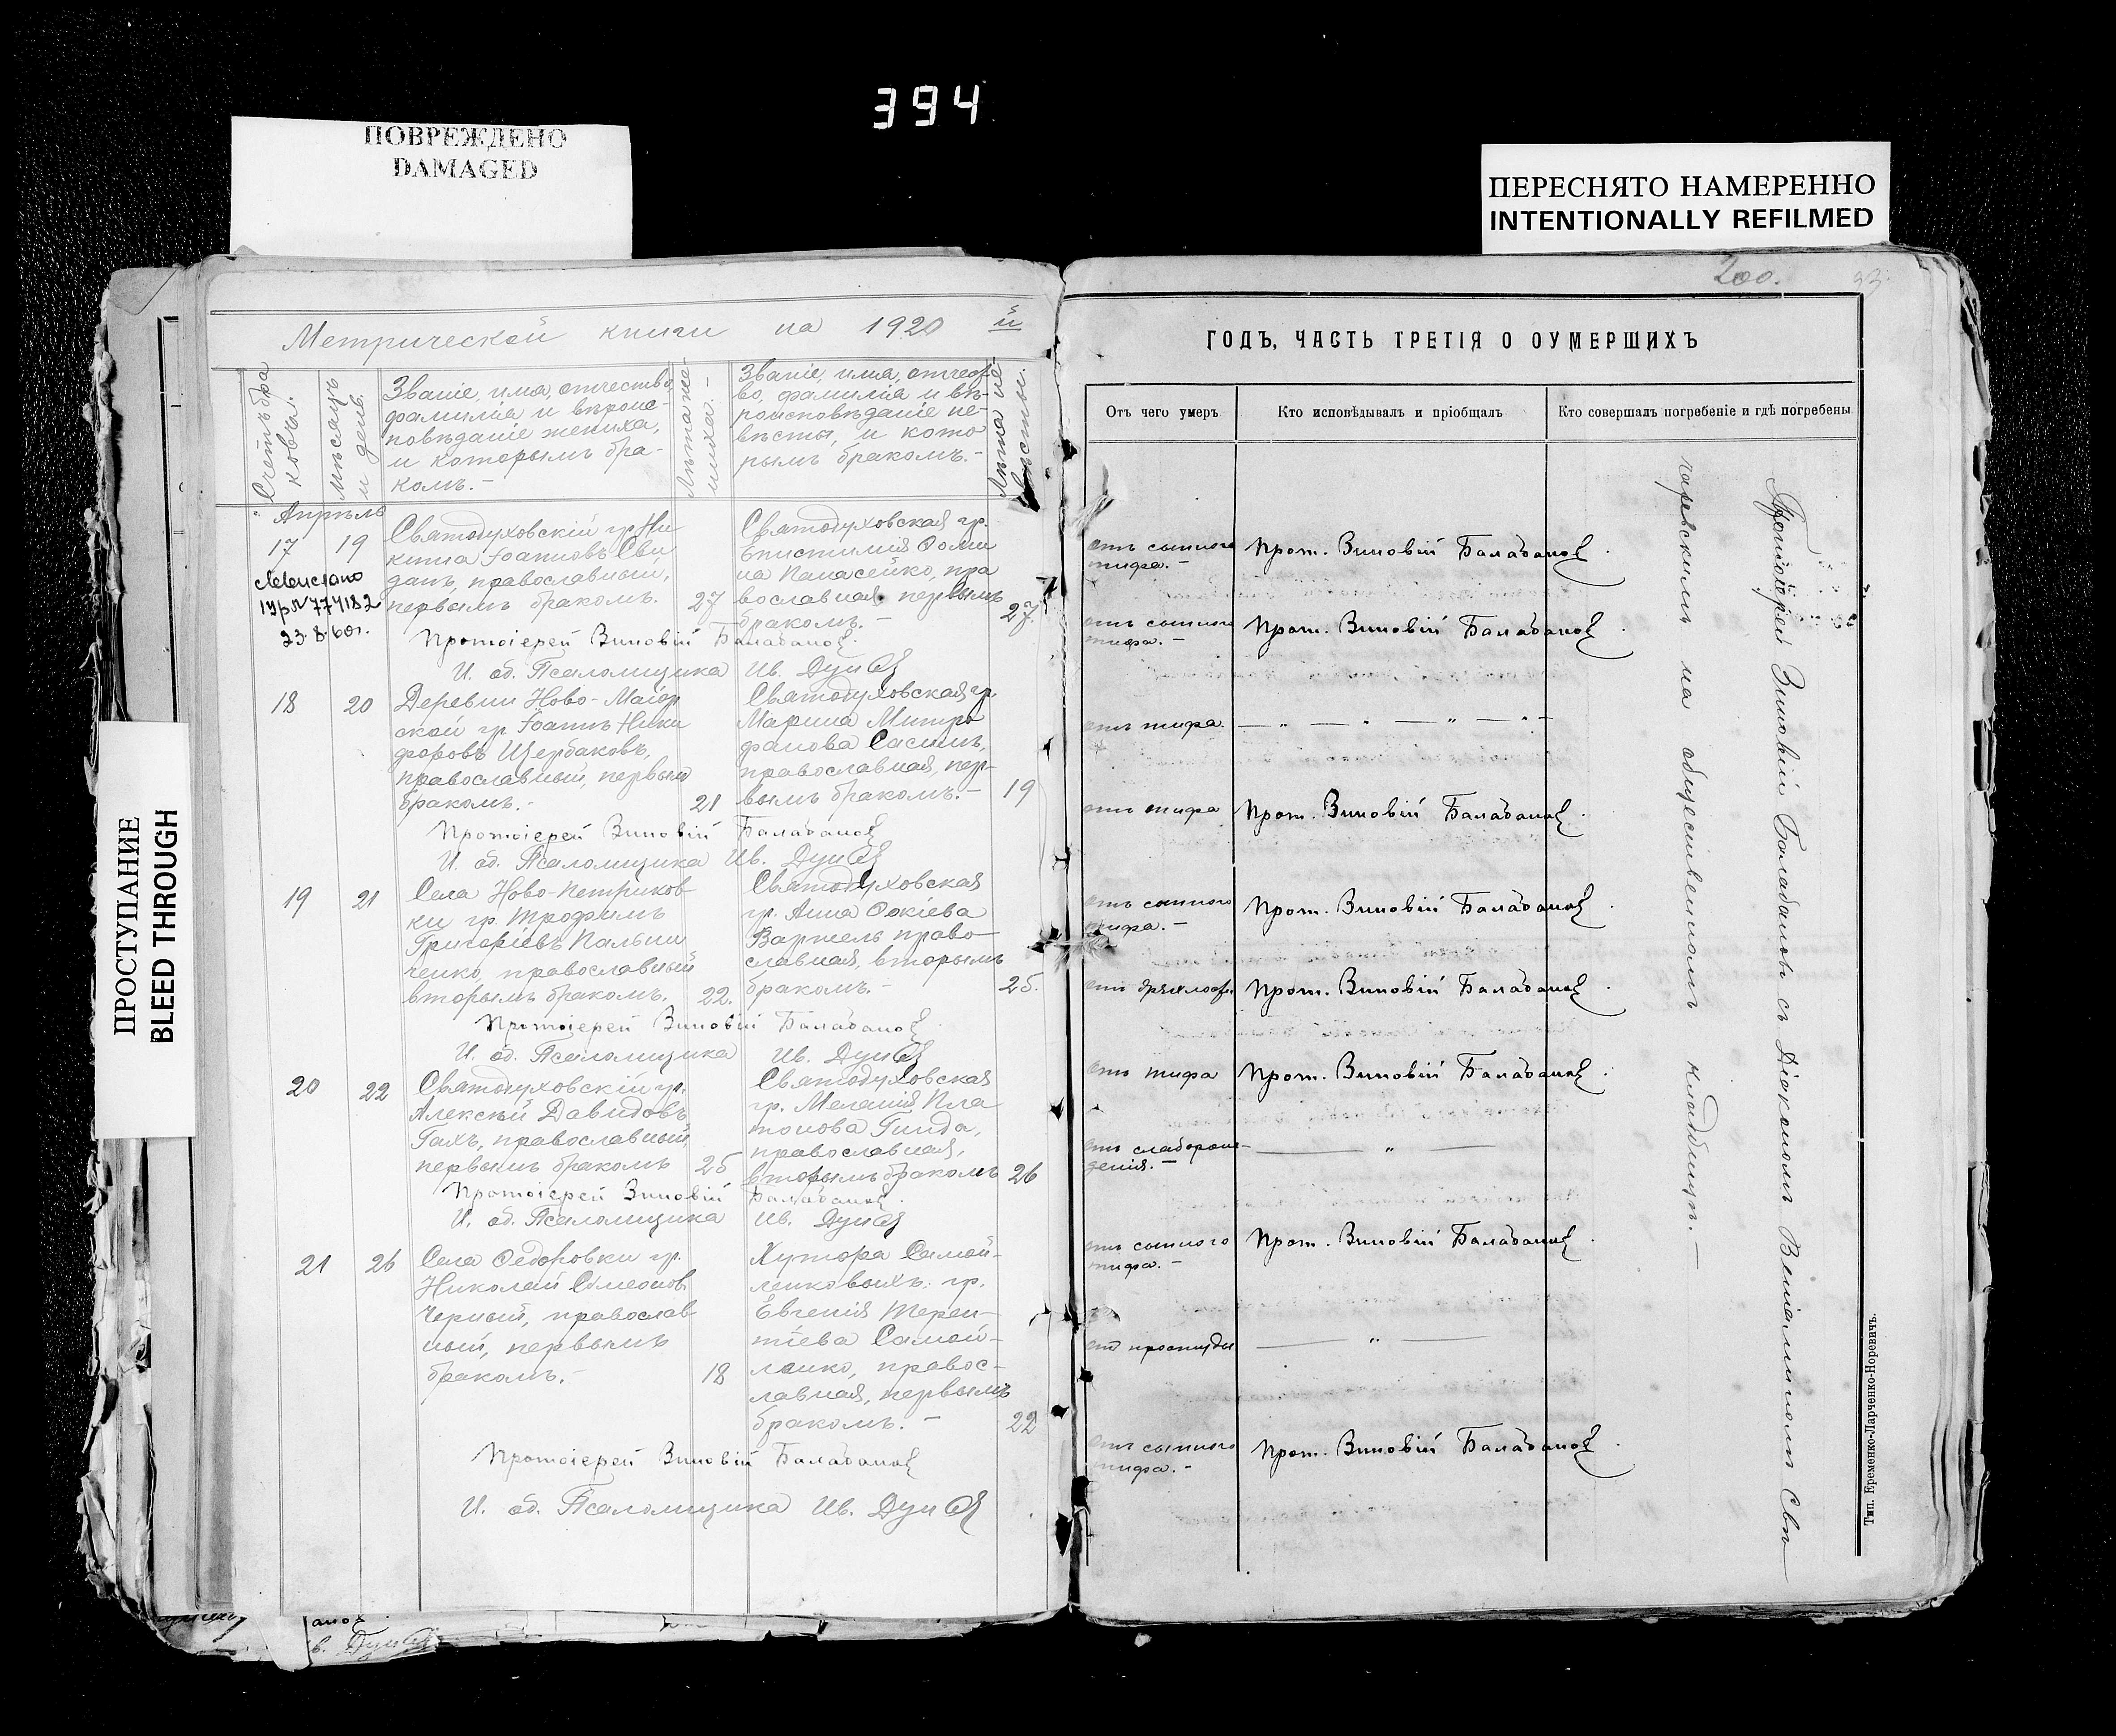 394
ПОВРЕЖДЕНО
DAMAGED
ПЕРЕСНЯТО НАМЕРЕННО
INTENTIONALLY REFILMED
ПРОСТУПАНИЕ
BLEED THROUGH
Метрической книги на 1920 й
Счетъ бра-
ковъ.
Мѣсяцъ
и день.
Званіе, имя, отчество
фамилія и вѣроис-
повѣданіе жениха,
и которымъ бра-
комъ.-
Лѣта же-
ниха.-
Званіе, имя, отчест-
во, фамилія и вѣ-
роисповѣданіе не-
вѣсты, и кото
рымъ бракомъ.-
Лѣта не-
вѣсты.
Апрѣль
17 19
Святодуховскій гр. Ни
кита Іоанновъ Сви
данъ, православный,
первымъ бракомъ. 27
Святодуховская гр.
Епистимія Фоми
на Панасейко, пра
вославная первымъ
бракомъ.- 27
23.8.60г.
Протоіерей Зиновій Балабановъ
И. об. Псаломщика Ив.
18 20
Деревни Ново-Маіор
ской гр. Іоаннъ Ники
форовъ Щербаковъ,
православный, первым
бракомъ.- 21
Святодуховская гр.
Марина Митро
фанова Сасимъ,
православная, пер-
вымъ бракомъ.- 19
Протоіерей Зиновій Балабановъ
И. об. Псаломщика Ив.
19 21
Села Ново-Петриков
ки гр. Трофимъ
Григоріевъ Пальчи
ченко, православный
вторымъ бракомъ. 22.
Святодуховская
гр. Анна Фокіева
православная, вторымъ
бракомъ.- 25.
Протоіерей Зиновій Балабановъ
И. об. Псаломщика Ив.
20 22
Святодуховскій гр.
Алексѣй Давидовъ
Гахъ, православный,
первымъ бракомъ 25
Святодуховская
гр. Меланія Пла
тонова Гинда,
православная,
вторымъ бракомъ 26
Протоіерей Зиновій Балабановъ
И. об. Псаломщика Ив.
21 26
Села Федоровки гр.
Николай Симеонов
Черный, православ
ный, первымъ
бракомъ.- 18
Хутора Самой-
ленковыхъ гр.
Евгенія Терен-
тіева Самой-
ленко, правос-
лавная, первымъ
бракомъ.- 22
Протоіерей Зиновій Балабановъ
И. об. Псаломщика Ив.
200.
ГОДЪ, ЧАСТЬ ТРЕТІЯ О ОУМЕРШИХЪ
Отъ чего умеръ
Кто исповѣдывалъ и пріобщалъ
Кто совершалъ погребеніе и гдѣ погребены
отъ сыпного
тифа.- Прот. Зиновій Балабановъ
отъ сыпного
тифа.- Прот. Зиновій Балабановъ
отъ тифа — „ — „ — „ —
отъ тифа Прот. Зиновій Балабановъ
отъ сыпного
тифа.- Прот. Зиновій Балабановъ
отъ дряхлости Прот. Зиновій Балабановъ
отъ тифа Прот. Зиновій Балабановъ
отъ слаборож-
денія.- — „ —
отъ сыпного
тифа.- Прот. Зиновій Балабановъ
отъ простуды — „ —
отъ сыпного
тифа.- Прот. Зиновій Балабановъ
Протоіерей Зиновій Балабановъ съ Діакономъ Веніаминомъ
на общественномъ кладбищѣ.-
Тип. Еременко-Ларченко-Норевичъ.